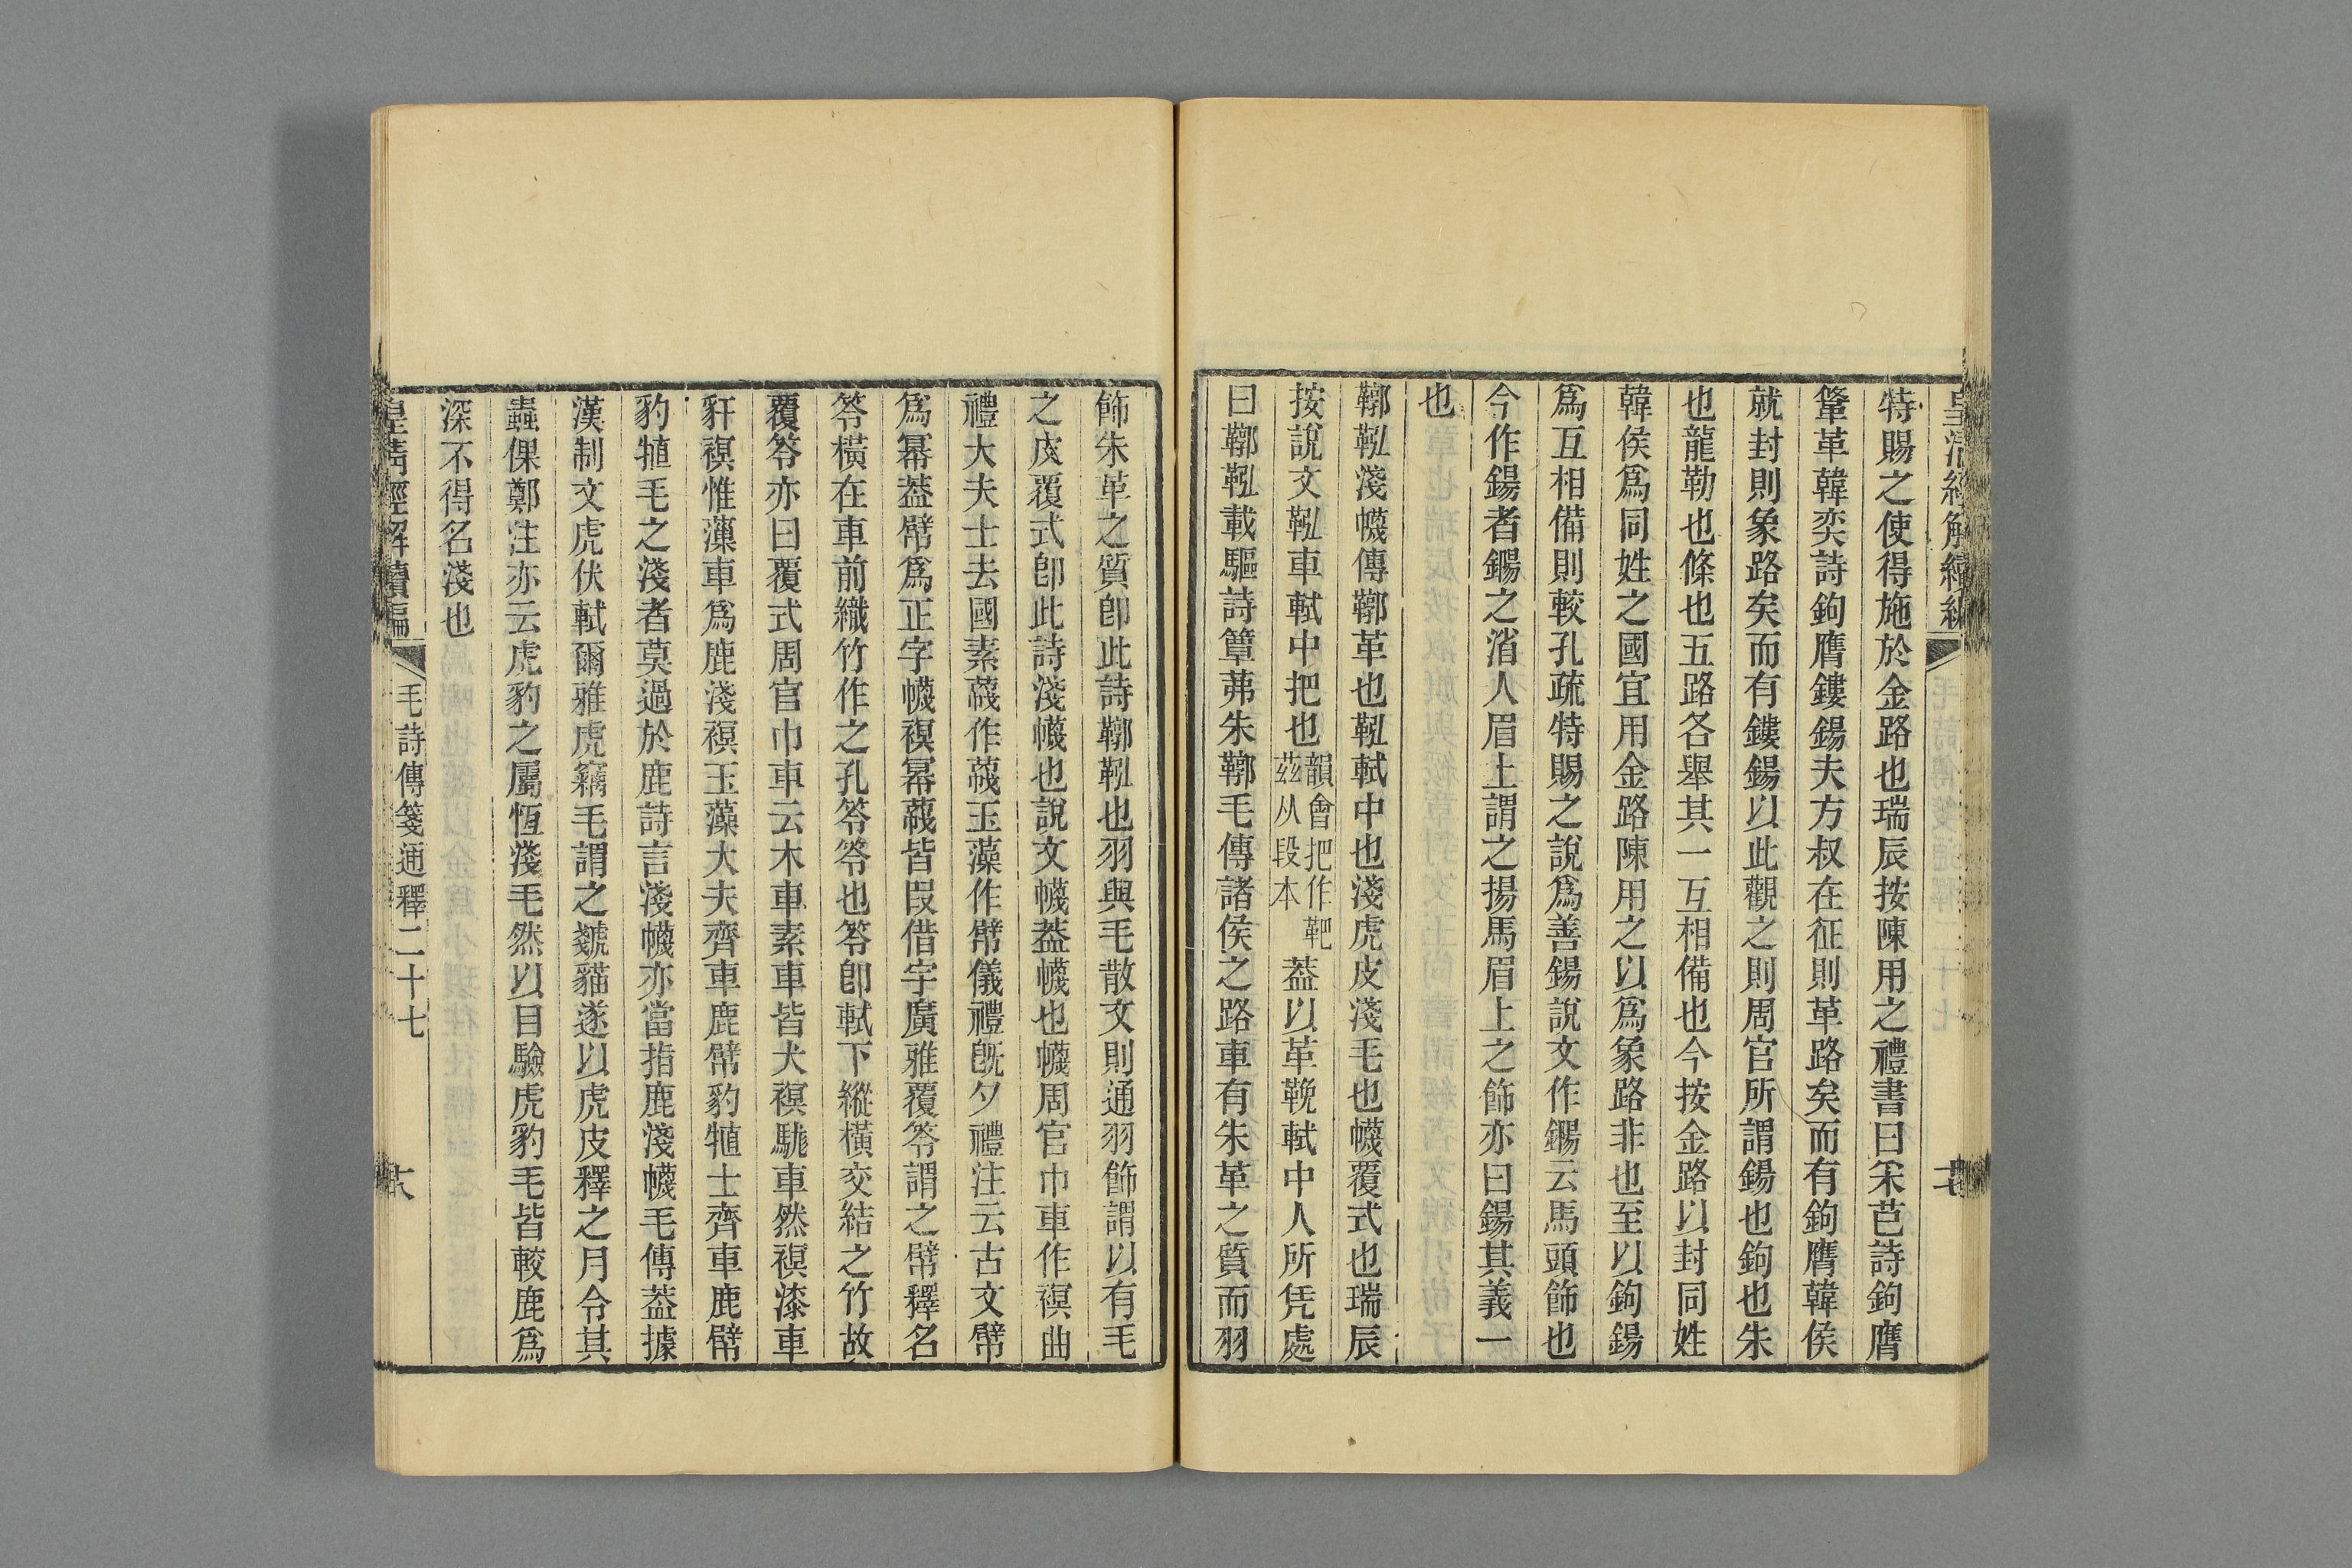 皇清經解續編
特賜之使得施於金路也瑞辰按陳用之禮書曰采芑詩鉤膺
鞶革韓奕詩鉤膺鏤鍚夫方叔在征則革路矣而有鉤膺韓侯
就封則象路矣而有鏤鍚以此觀之則周官所謂鍚也鉤也朱
也龍勒也條也五路各舉其一互相備也今按金路以封同姓
韓侯爲同姓之國宜用金路陳用之以爲象路非也至以鉤鍚
爲互相備則較孔疏特賜之說爲善鍚說文作鐊云馬頭飾也
今作鍚者鐊之消人眉上謂之揚馬眉上之飾亦曰鍚其義一
也
鞹鞃淺幭傳鞹革也鞃軾中也淺虎皮淺毛也幭覆式也瑞辰
按說文鞃車軾中把也韻會把作靶茲从段本蓋以革鞔軾中人所凭處
曰鞹鞃載驅詩簟茀朱鞹毛傳諸侯之路車有朱革之質而羽
飾朱革之質卽此詩鞹鞃也羽與毛散文則通羽飾謂以有毛
之皮覆式卽此詩淺幭也說文幭蓋幭也幭周官巾車作𧜀曲
禮大夫士去國素𥴊作𥴊玉藻作幦儀禮旣夕禮注云古文幦
爲冪蓋幦爲正字幭𧜀冪𥴊皆叚借字廣雅覆笭謂之幦釋名
笭橫在車前織竹作之孔笭笭也笭卽軾下縱橫交結之竹故
覆笭亦曰覆式周官巾車云木車素車皆犬𧜀駹車然𧜀漆車
豻𧜀惟藻車爲鹿淺𧜀玉藻大夫齊車鹿幦豹犆士齊車鹿幦
豹犆毛之淺者莫過於鹿詩言淺幭亦當指鹿淺幭毛傳蓋據
漢制文虎伏軾爾雅虎竊毛謂之虦貓遂以虎皮釋之月令其
蟲倮鄭注亦云虎豹之屬恆淺毛然以目驗虎豹毛皆較鹿爲
深不得名淺也
皇淸經解續編
毛詩傳箋通釋二十七